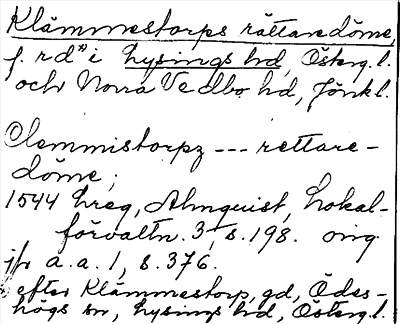 Klämmestorps rättaredöme,
f. r d" i Lysings hd, Österg. l.
och Norra Vedbo hd, Jönk l.
Clemmistorpz --- rettare-
döme;
1544 hreg, Almquist, Lokal-
förvaltn. 3, s. 198. orig
jfr a. a. 1, s. 376.
efter Klämmestorp, gd, Ödes-
högs sn, Lysings hd, Österg. l.